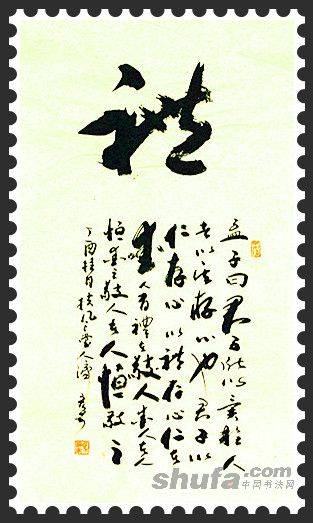 禮
孟子曰君子所以異於人
者以其存心也君子以
仁存心以禮存心仁者
愛人有禮者敬人愛人者人
恒愛之敬人者人恒敬之
丁酉桂月扶風
shufa.com
中国书法网